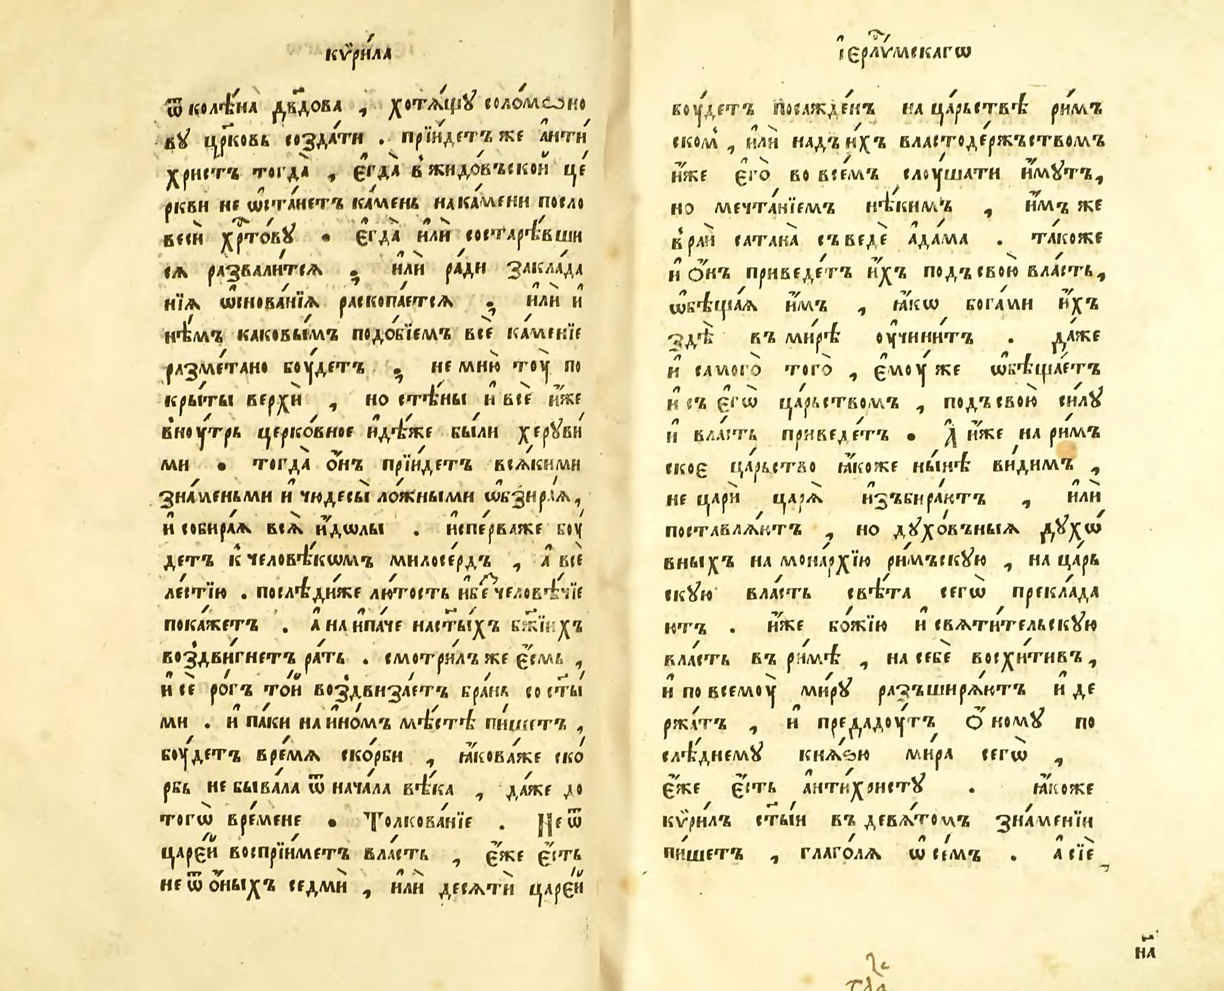 кѷри́ла
ѿ колѣ́на дв҃дова , хотѧ́щꙋ соло́мѡно
вꙋ цр҃ковь созда́ти . прїи́детъ же а҆нти́
христъ тогда̀ , є҆гда̀ в жидо́въскои це́
ркви не ѡ҆ста́нетъ ка́мень на ка́мени посло
веси̂ хр҇то́вꙋ . є҆гда̀ и҆лѝ состарѣ́вши
сѧ развали́тсѧ , и҆лѝ ра́ди закла́да
нїѧ ѡ҆снова́нїѧ раскопа́етсѧ , и҆лѝ и
нѣ́мъ каковы́мъ подо́бїемъ всѐ ка́менїе
разме́тано бꙋ́детъ , не мню̀ тоу̀ по
кры́ты верхѝ , но стѣ́ны и҆ всѐ и҆́же
внꙋ́трь церко́вное и҆дѣ́же бы́ли херꙋви́
ми . тогда̀ ѻ҆́нъ прїи́детъ всѧ́кими
зна́меньми и҆ чюдесы̀ ло́жными ѡ҆бзира́ѧ ,
и҆ собира́ѧ всѧ̀ и҆́дѡлы . и҆спе́рваже боу́
детъ к человѣ́кѡмъ милосе́рдъ , а҆ всѐ
ле́стїю . послѣдиже лю́тость и҆ без̾человѣ́чїе
пока́жетъ . а҆ на ипа́че на ст҃ы́хъ бж҃їихъ
воздви́гнетъ ра́ть . смотри́лъ же є҆́смь ,
и҆ сѐ ро́гъ то́и воздвиза́етъ бра́нь со ст҃ы́
ми . и҆ па́ки на ино́мъ мѣ́стѣ пи́шетъ ,
боу́детъ вре́мѧ ско́рби , ꙗ҆кова́же ско́
рбь не быва́ла ѿ нача́ла вѣ́ка , да́же до
тогѡ̀ вре́мене . Толкова́нїе . Не ѿ
царе́и воспрїи́метъ вла́сть , є҆́же є҆́сть
не ѿ ѻ҆́ныхъ седмѝ , и҆лѝ десѧтѝ царе́и
і҆ерл҃и́мскагѡ
боу́детъ посажде́нъ на ца́рьствѣ ри́мъ
ском , и҆лѝ надъ и҆́хъ властоде́ржъствомъ
и҆́же є҆го̀ во все́мъ слоу́шати и҆́мꙋтъ ,
но мечта́нїемъ нѣ́кимъ , и҆́мъ же
в ра́и сатана̀ съведѐ а҆да́ма . та́коже
и҆ ѻ҆́нъ приведе́тъ и҆́хъ подъ свою̀ вла́сть ,
ѡ҆бѣща́ѧ и҆́мъ , ꙗ҆́кѡ бога́ми и҆́хъ
здѣ̀ въ ми́рѣ оу҆чини́тъ . да́же
и҆ самого̀ того̀ , є҆моу́ же ѡ҆бѣща́етъ
и съ є҆гѡ̀ ца́рьствомъ , подъ свою̀ си́лꙋ
и҆ вла́сть приведе́тъ . А҆ и҆́же на ри́мъ
ское ца́рьство ꙗ҆́коже ны́нѣ ви́димъ ,
не царѝ царѧ̀ и҆зъбира́ютъ , и҆лѝ
поставлѧ́ютъ , но дꙋхо́въныѧ дꙋхѡ́
вныхъ на мона́рхїю ри́мъскꙋю , на ца́рь
скꙋю вла́сть свѣ́та сегѡ̀ преклада
ютъ . и҆́же бо́жїю и҆ свѧти́тельскꙋю
вла́сть въ ри́мѣ , на себѐ восхи́тивъ ,
и҆ по всемоу̀ ми́рꙋ разъширѧ́ютъ и҆ де
ржа́тъ , и҆ предадоу́тъ ѻ҆́номꙋ по
слѣ́днемꙋ кнѧ́ѕю ми́ра сегѡ̀ ,
є҆́же є҆́сть а҆нти́христꙋ . ꙗ҆́коже
кѷри́лъ ст҃ы́и въ девѧ́томъ зна́менїи
пи́шетъ , глаго́лѧ ѡ҆ се́мъ . а҆ сїѐ
на҃